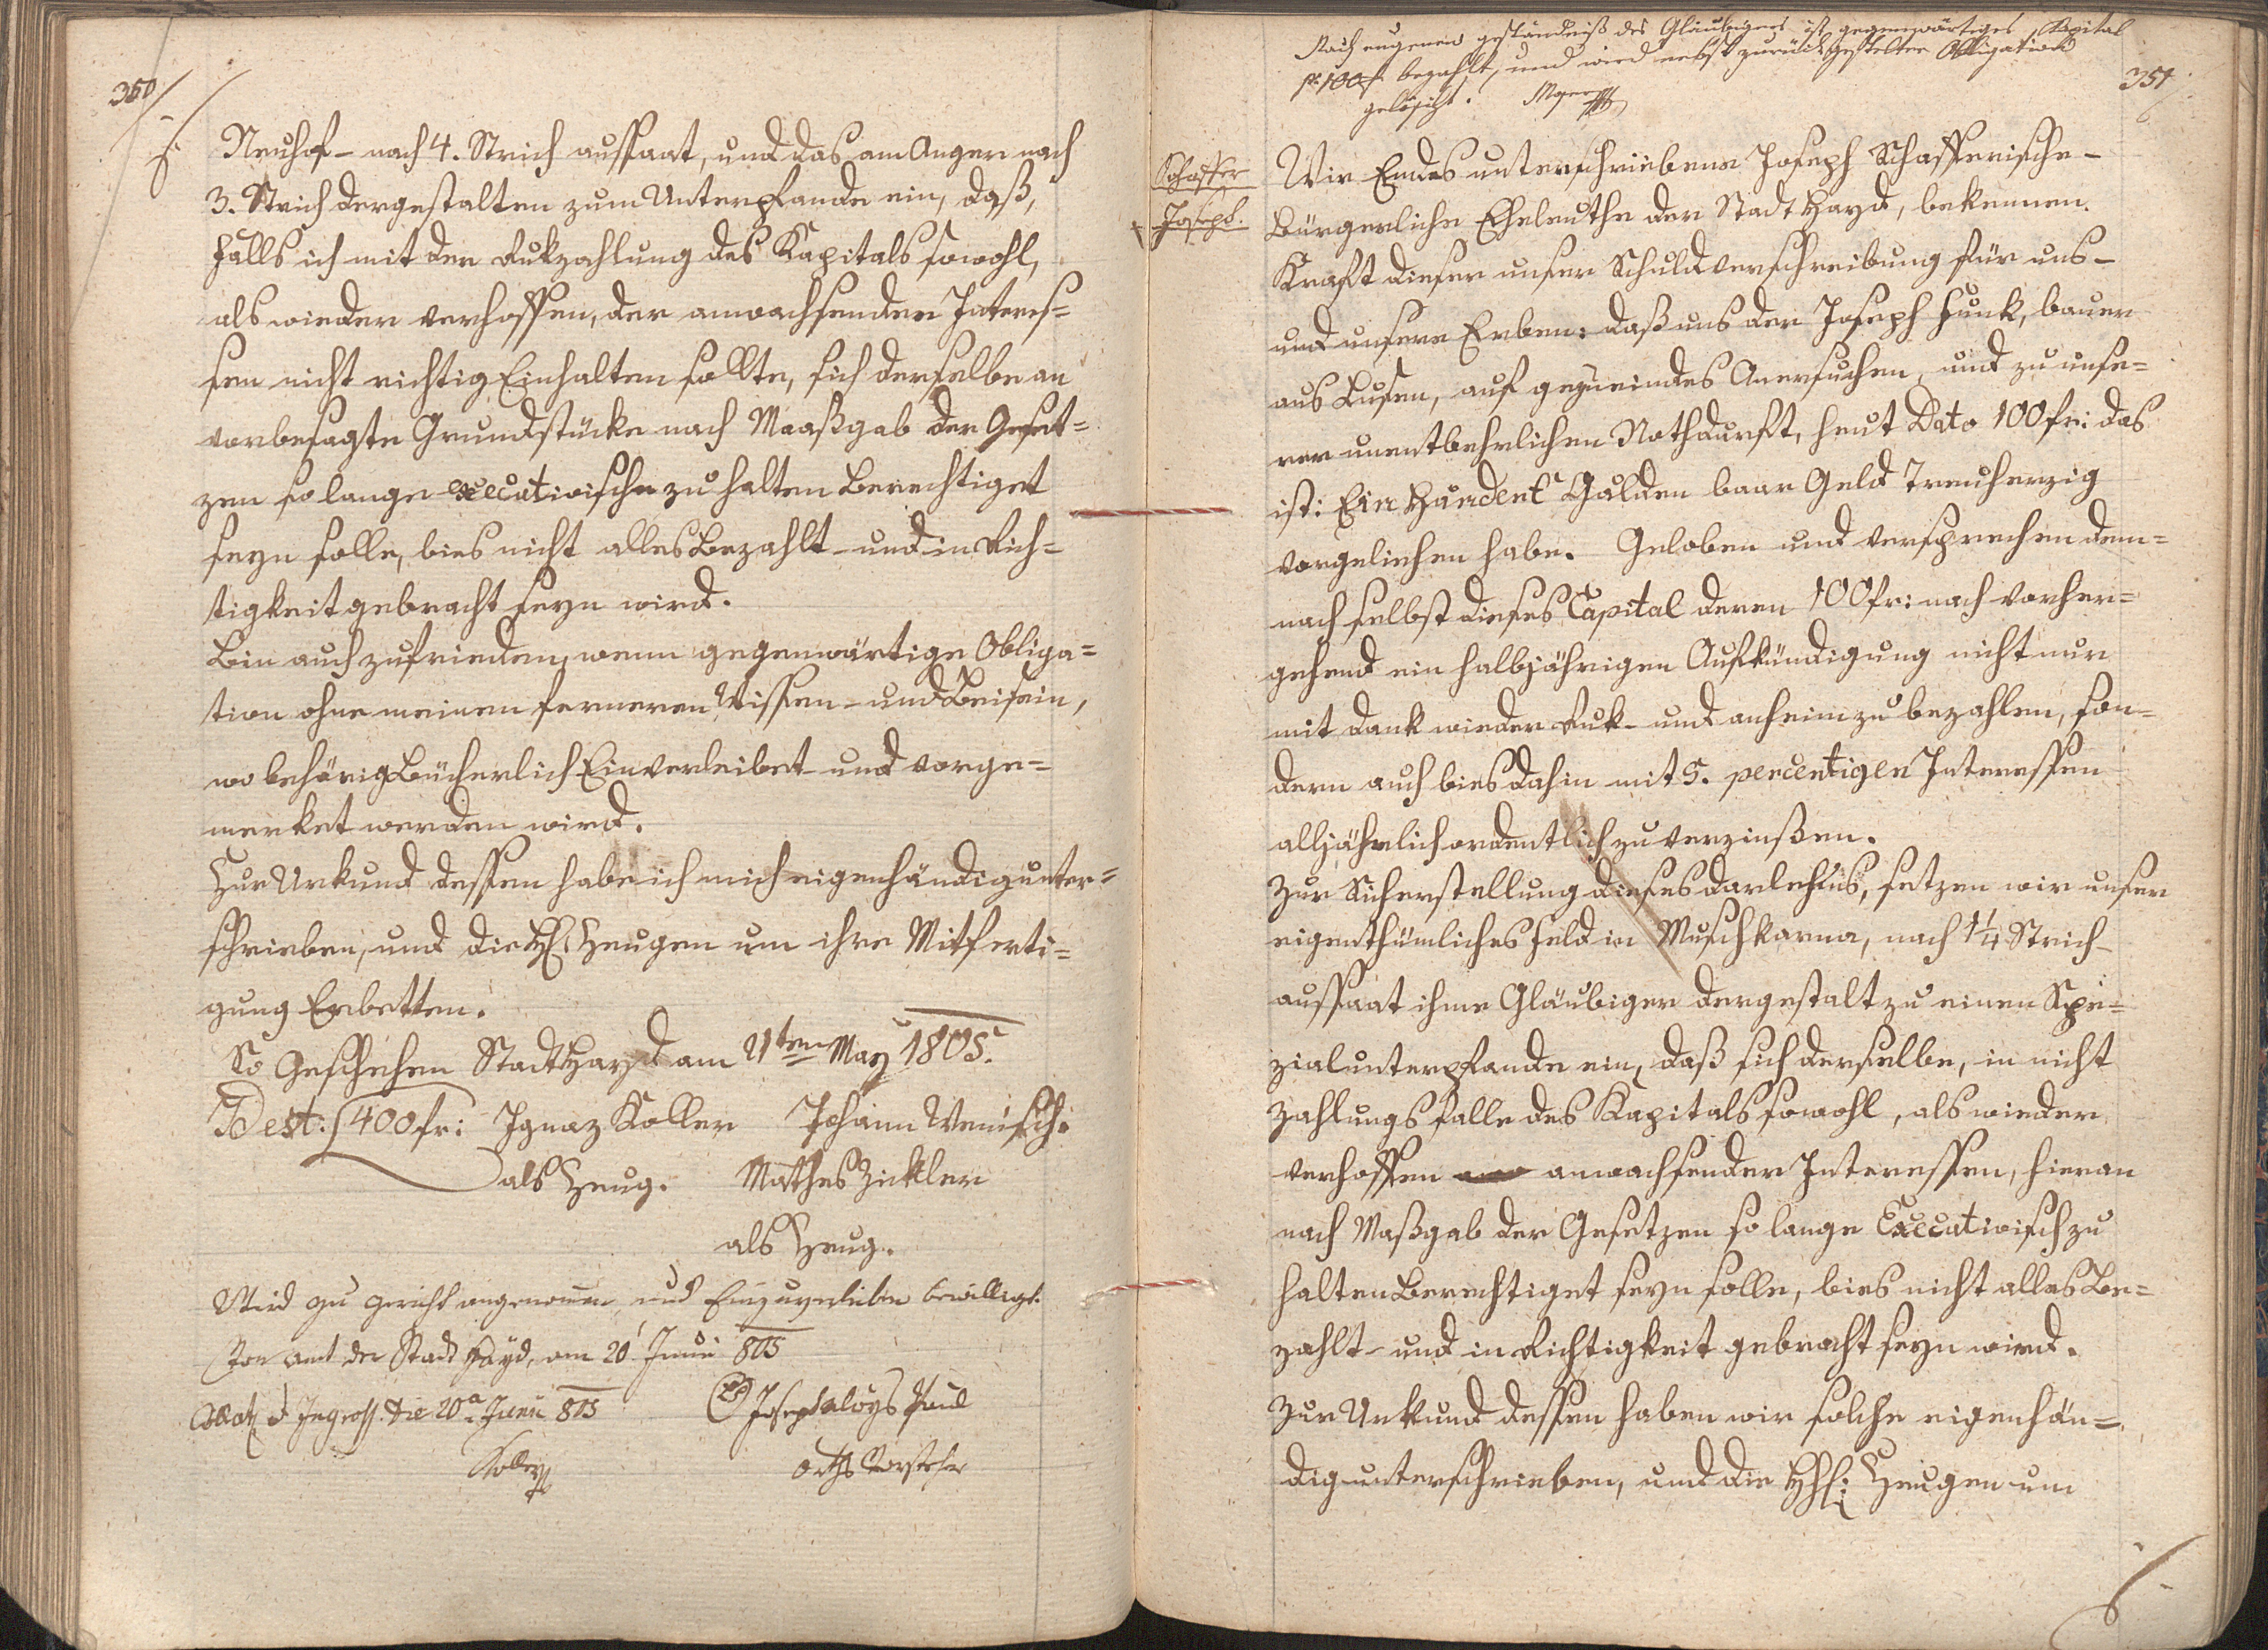 350
Neuhof - nach 4. Strich aussaat, und das am Anger nach
3. Strich dergestalten zum Unterpfande ein, daß,
Falls ich mit der Rukzahlung des Kapitals sowohl,
als wieder verhoffen, der anwachsenden Interes=
sen nicht richtig Einhalten sollte, sich derselbe an
vorbesagte Grundstücke nach Maaßgab der Geset=
zen so lange executivische zu halten Berechtiget
seyn solle, bies nicht alles Bezahlt - und in Rich=
tigkeit gebracht seyn wird.
Bin auch zufrieden, wenn gegenwärtige Obliga=
tion ohne meinen ferneren Wissen - und Beisein,
wo behörig Bücherlich Einverleibet - und vorge=
merket werden wird.
Zur Urkund dessen habe ich mich eigenhändig unter=
schrieben, und die H: Zeugen um ihre Mitferti=
gung Erbetten.
So Geschehen Stadt Hayd am 21ten May 1805.
Dest: 400 fr: Ignaz Koller Johann Wenisch.
als Zeug. Mathes Zickler
als Zeug.
Wird zu gericht angenommen, und Einzuverleiben bewilligt.
Von Amt der Stadt Hayd, am 20' Junii 805
Collat: et Ingross. die 20a Junii 805 Joseph Aloys Paul
Koller Orths Vorsteher
Nach eugenen geständniß des Gläubigers ist gegenwärtiges Kapital
pr 100 f. bezahlt, und wird nebst zurückgestelter Obligation
gelöscht.
351
Schaffer
Joseph.
Wir Endes unterschriebene Joseph Schafferische -
Bürgerliche Eheleuthe der Stadt Hayd, bekennen
Kraft dieser unser Schuldverschreibung für uns -
und unsere Erben: daß uns der Joseph Hunk, bauer
aus Lusen, auf geziemdes Anersuchen, und zu unse=
rer unentbehrlichen Nothdurft, heut Dato 100 fr: das
ist: Ein Hundert Gulden baar Geld Treuherzig
vorgeliehen habe. Geloben und versprechen dem=
nach selbst dieses Capital deren 100 fr: nach vorher=
gehend ein halbjährigen Aufkündigung nicht nur
mit Dank wieder Ruk - und anheim zu bezahlen, son=
dern auch bies dahin mit 5. percentigen Interessen
alljährlich ordentlich zu verzinßen.
Zur Sicherstellung dieses Darlehens, setzen wir unser
eigenthümliches Feld in Muschkarna, nach 1¼ Strich
aussaat ihme Gläubiger dergestalt zu einen Spe=
zialunterpfande ein, daß sich derselbe, in nicht
Zahlungsfalle des Kapitals sowohl, als wieder
verhoffen anwachsender Interessen, hieran
nach Maßgab der Gesetzen so lange Executivisch zu
halten Berechtiget seyn solle, bies nicht alles Be=
zahlt - und in Richtigkeit gebracht seyn wird.
Zur Urkund dessen haben wir solche eigenhän=
dig unterschrieben, und die HH: Zeugen um